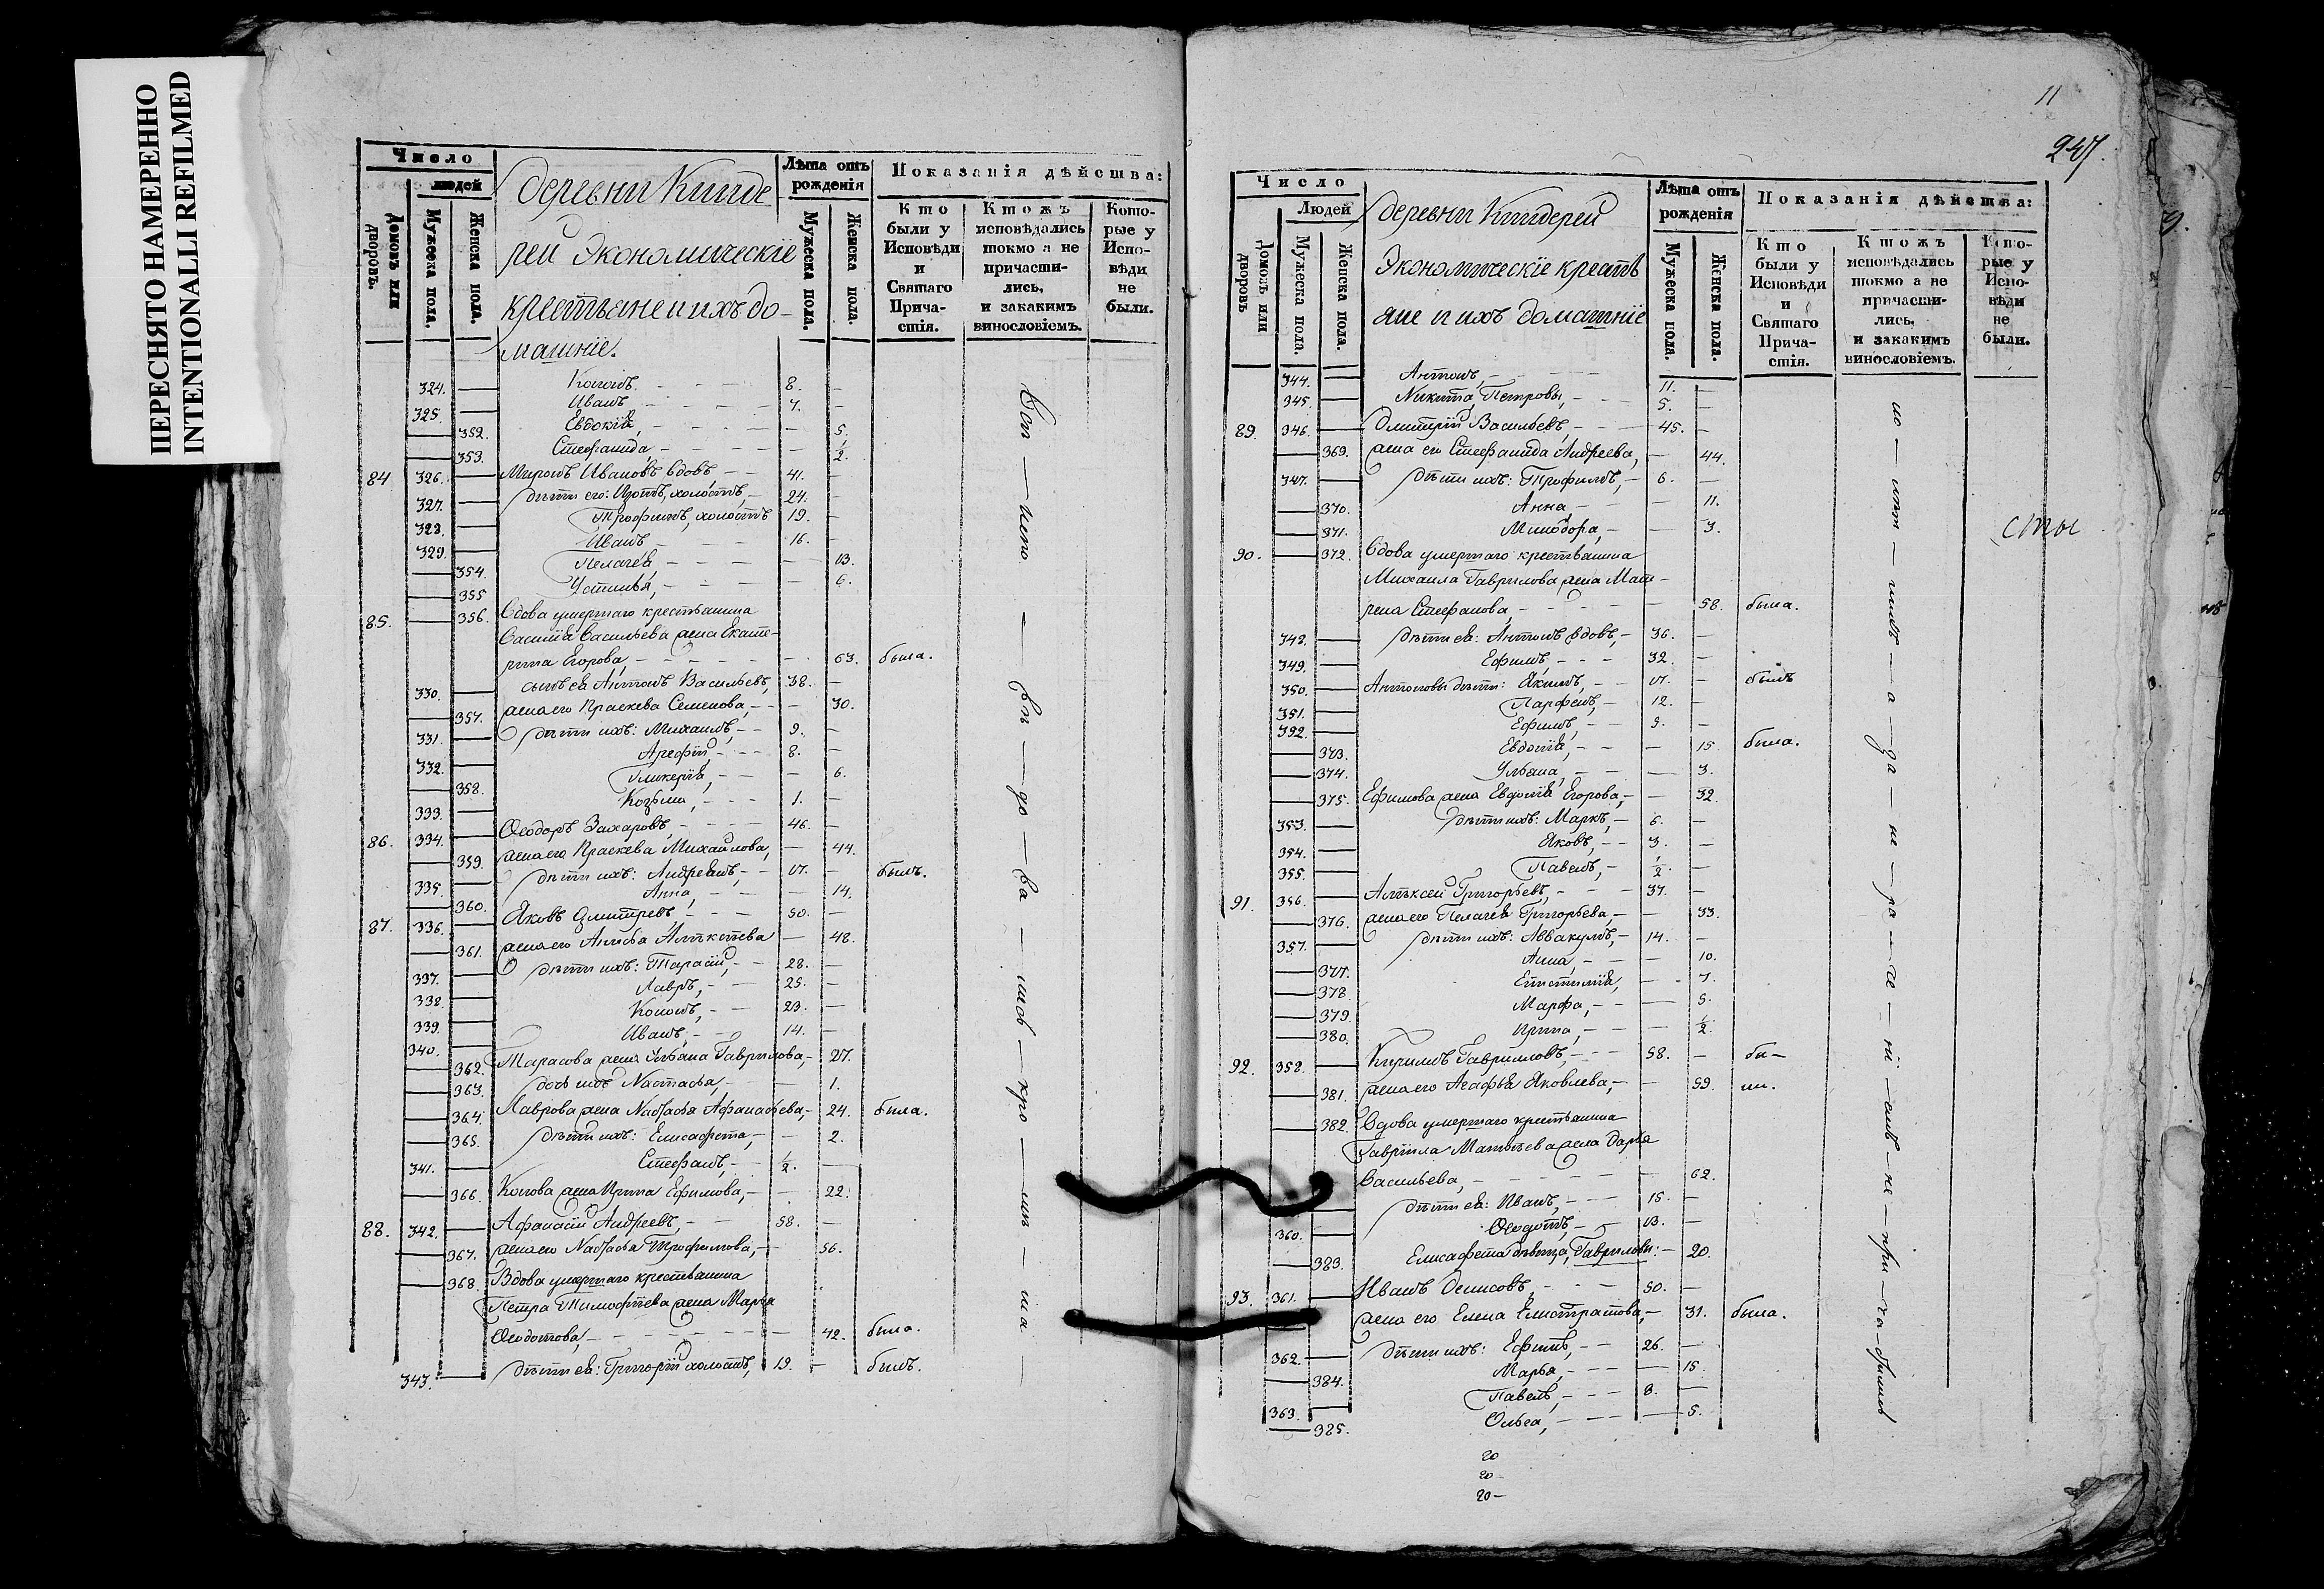 ПЕРЕСНЯТО НАМЕРЕННО
INTENTIONALLI REFILMED
Число
людей
Домовъ или дворовъ.
Мужеска пола.
Женска пола.
деревни Кинде-
рей Экономическіе
крестьяне и ихъ до-
машніе.
Лѣта отъ рожденія
Мужеска пола.
Женска пола.
Показанія дѣйства:
Кто были у Исповѣди и Святаго Прича-стія.
Ктожъ исповѣдались токмо а не причасти-лись, и закакимъ винословіемъ.
Кото-рые у Испо-вѣди не были.
324. Кононъ 8. -
325. Иванъ 7. -
352. Евдокія, - 5.
353. Стефанида - 1/2.
84 326. Миронъ Ивановъ вдовъ 41. -
327. дѣти его: Изотъ, холостъ, 24. -
328. Трофимъ, холостъ 19. -
329. Иванъ 16. -
354. Пелагея, - 13.
355 Устинья, - 6.
85. 356. Вдова умершаго крестьянина
Василія Васильева жена Екате-
рина Егорова, - 63. была.
330. сынъ ея Антонъ Васильевъ, 38. -
357. жена его Праскева Семенова, - 30.
331. дѣти ихъ: Михаилъ, 9. -
332. Арефій, 8. -
358. Гликерія, - 6.
333. Козьма, 1. -
86. 334. Ѳеодоръ Захаровъ, 46. -
359. жена его Праскева Михайлова, - 44.
335. дѣти ихъ: Андреянъ, 17. - былъ.
360. Анна, - 14.
87. 336. Яковъ Дмитревъ, 50. -
361. жена его Алексѣева - 48.
337. дѣти ихъ: Тарасій, 28. -
338. Лавръ, 25. -
339. Кононъ, 23. -
340. Иванъ, 14. -
362. Тарасова жена Ульяна Гаврилова, 27.
363. дочь ихъ Настасья, - 1.
364. Лаврова жена Надѣжда Афанасьева, 24. была.
365. дѣти ихъ: Елисафета, - 2.
341. Стефанъ, 1/2. -
366. Конова жена Ирина Ефимова, - 22.
88. 342. Афанасій Андреевъ, 58. -
367. жена его Трофимова, 56.
368. Вдова умершаго крестьянина
Петра Тимофѣева жена Марья
Ѳедотова, - 42. была.
343. дѣти ея: Григорій холостъ, 19. - былъ.
11
247.
Число
Людей
Домовъ или дворовъ
Мужеска пола.
Женска пола.
деревни Киндерей
Экономическіе крестья
яне и ихъ домашніе
Лѣта отъ рожденія
Мужеска пола.
Женска пола.
Показанія дѣйства:
Кто были у Исповѣди и Святаго Прича-стія.
Ктожъ исповѣдались токмо а не причасти-лись, и закакимъ винословіемъ.
Кото-рые у Испо-вѣди не были.
344. Антонъ, 11. -
345. Никита, Петровы, 5. -
89. 346. Дмитрій Васильевъ, 45. -
369. жена его Стефанида Андреева, - 44.
347. дѣти ихъ: Трофимъ, 6. -
370. Анна, - 11.
371. Минодора, - 3.
90. 372. Вдова умершаго крестьянина
Михаила Гаврилова жена Мат-
рена Стефанова, - 58. была.
348. дѣти ея: Антонъ вдовъ, 36. -
349. Ефимъ, 32. -
350. Антоновы дѣти: Якимъ, 17. - былъ
351. Парфенъ, 12. -
352. Ефимъ, 9. -
373. Евдокія, - 15. была.
374. Ульяна, - 3.
375. Ефимова жена Евдокія Егорова, - 32.
353. дѣти ихъ: Маркъ, 6. -
354. Яковъ, 3. -
355. Павелъ, 1/2 -
91. 356. Алѣксей Григорьевъ, 37. -
376. жена его Пелагея Григорьева, - 33.
357. дѣти ихъ: Аввакумъ, 14. -
377. Анна, - 10.
378. Епистимія, - 7.
379. Марфа, - 5.
380. Ирина, - 1/2.
92. 358. Кирилъ Гавриловъ, 58. - бы-
381. жена его Агафья Яковлева, - 59. ли.
382. Вдова умершаго крестьянина
Гаврила Матвѣева жена Дарья
Васильева, - 62.
дѣти ея: Иванъ, 15. -
360. Ѳедотъ, 13. -
383. Елисафета дѣвица, Гавриловы: 20.
93. 361. Иванъ Денисовъ, 50. -
жена его Елена Елистратова, 31. была.
362. дѣти ихъ: Ефимъ, 26. -
384. Марья, - 15
363. Павелъ, 8. -
385. Ольга, - 5.
сты
20
20
20-